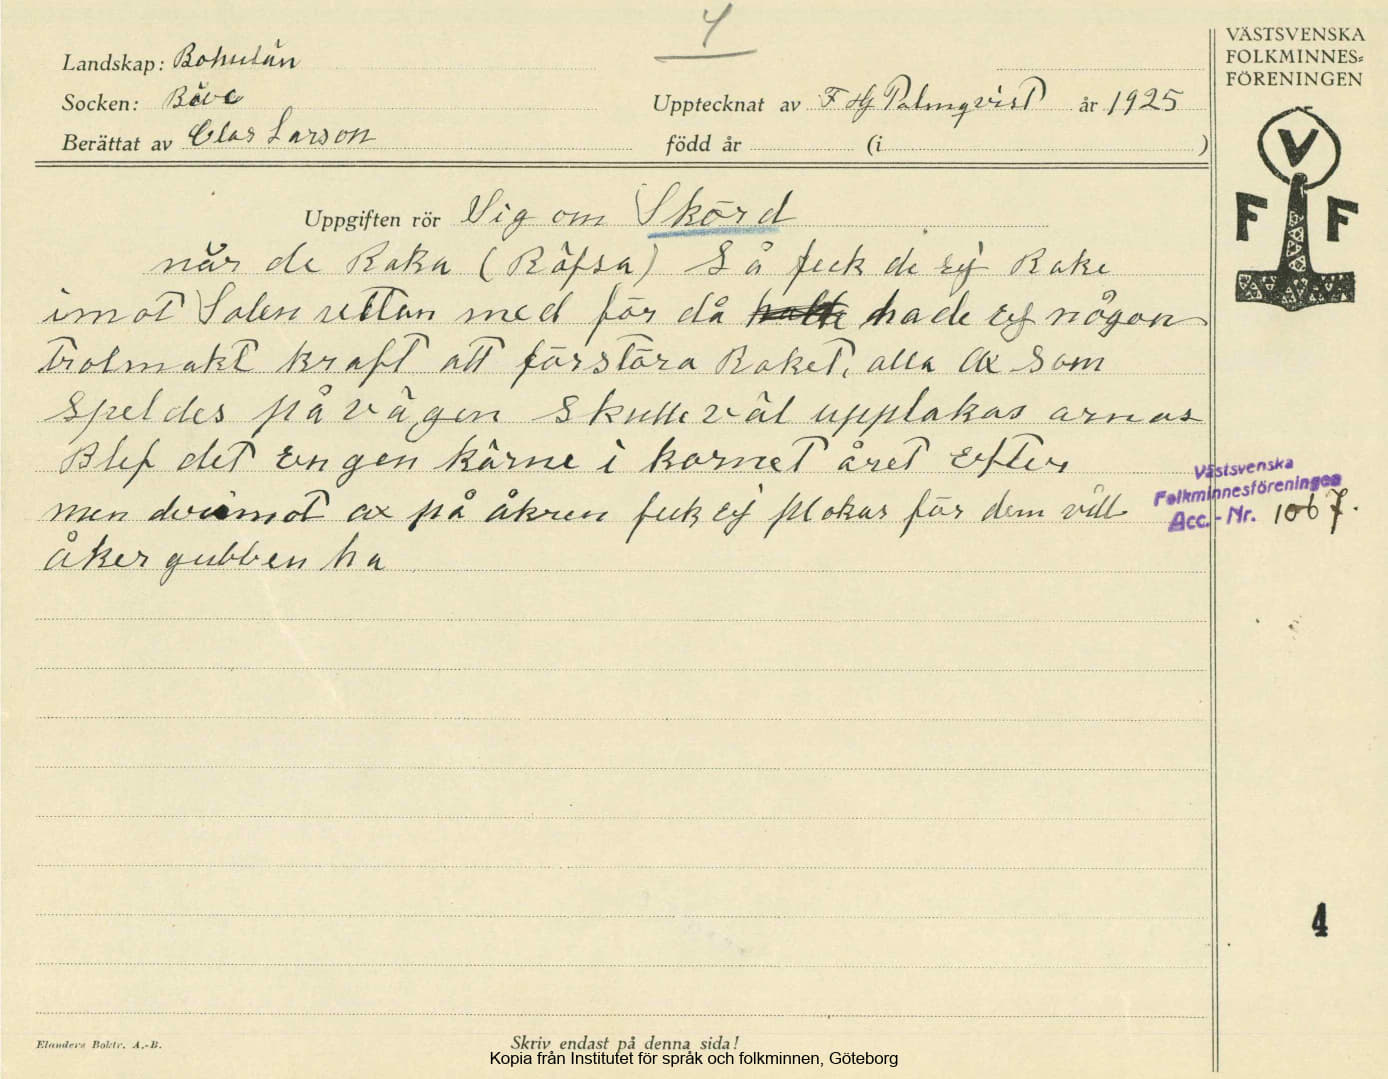 4
VÄSTSVENSKA
FOLKMINNES=
FÖRENINGEN
Landskap: Bohuslän
Socken: Bäve
Upptecknat av F Hj Palmqvist år 1925
Berättat av Clas Larson född år (i )
V
F F
Uppgiften rör Sig om Skörd
när de Raka (Räfsa) Så feck de ej Rake
imot Solen uttan med för då hade ej någon
trolmakt kraft att förstöra Raket, alla Ax Som
Speldes på vägen Skulle väl upplokas arnas
Blef det engen kärne i kornet året efter
men dvimot ax på åkren feck ej plokas för dem vill
åkergubben ha
Västsvenska
Folkminnesföreningen
Acc.-Nr. 1067.
4
Elanders Boktr. A.-B.
Skriv endast på denna sida!
Kopia från Institutet för språk och folkminnen, Göteborg